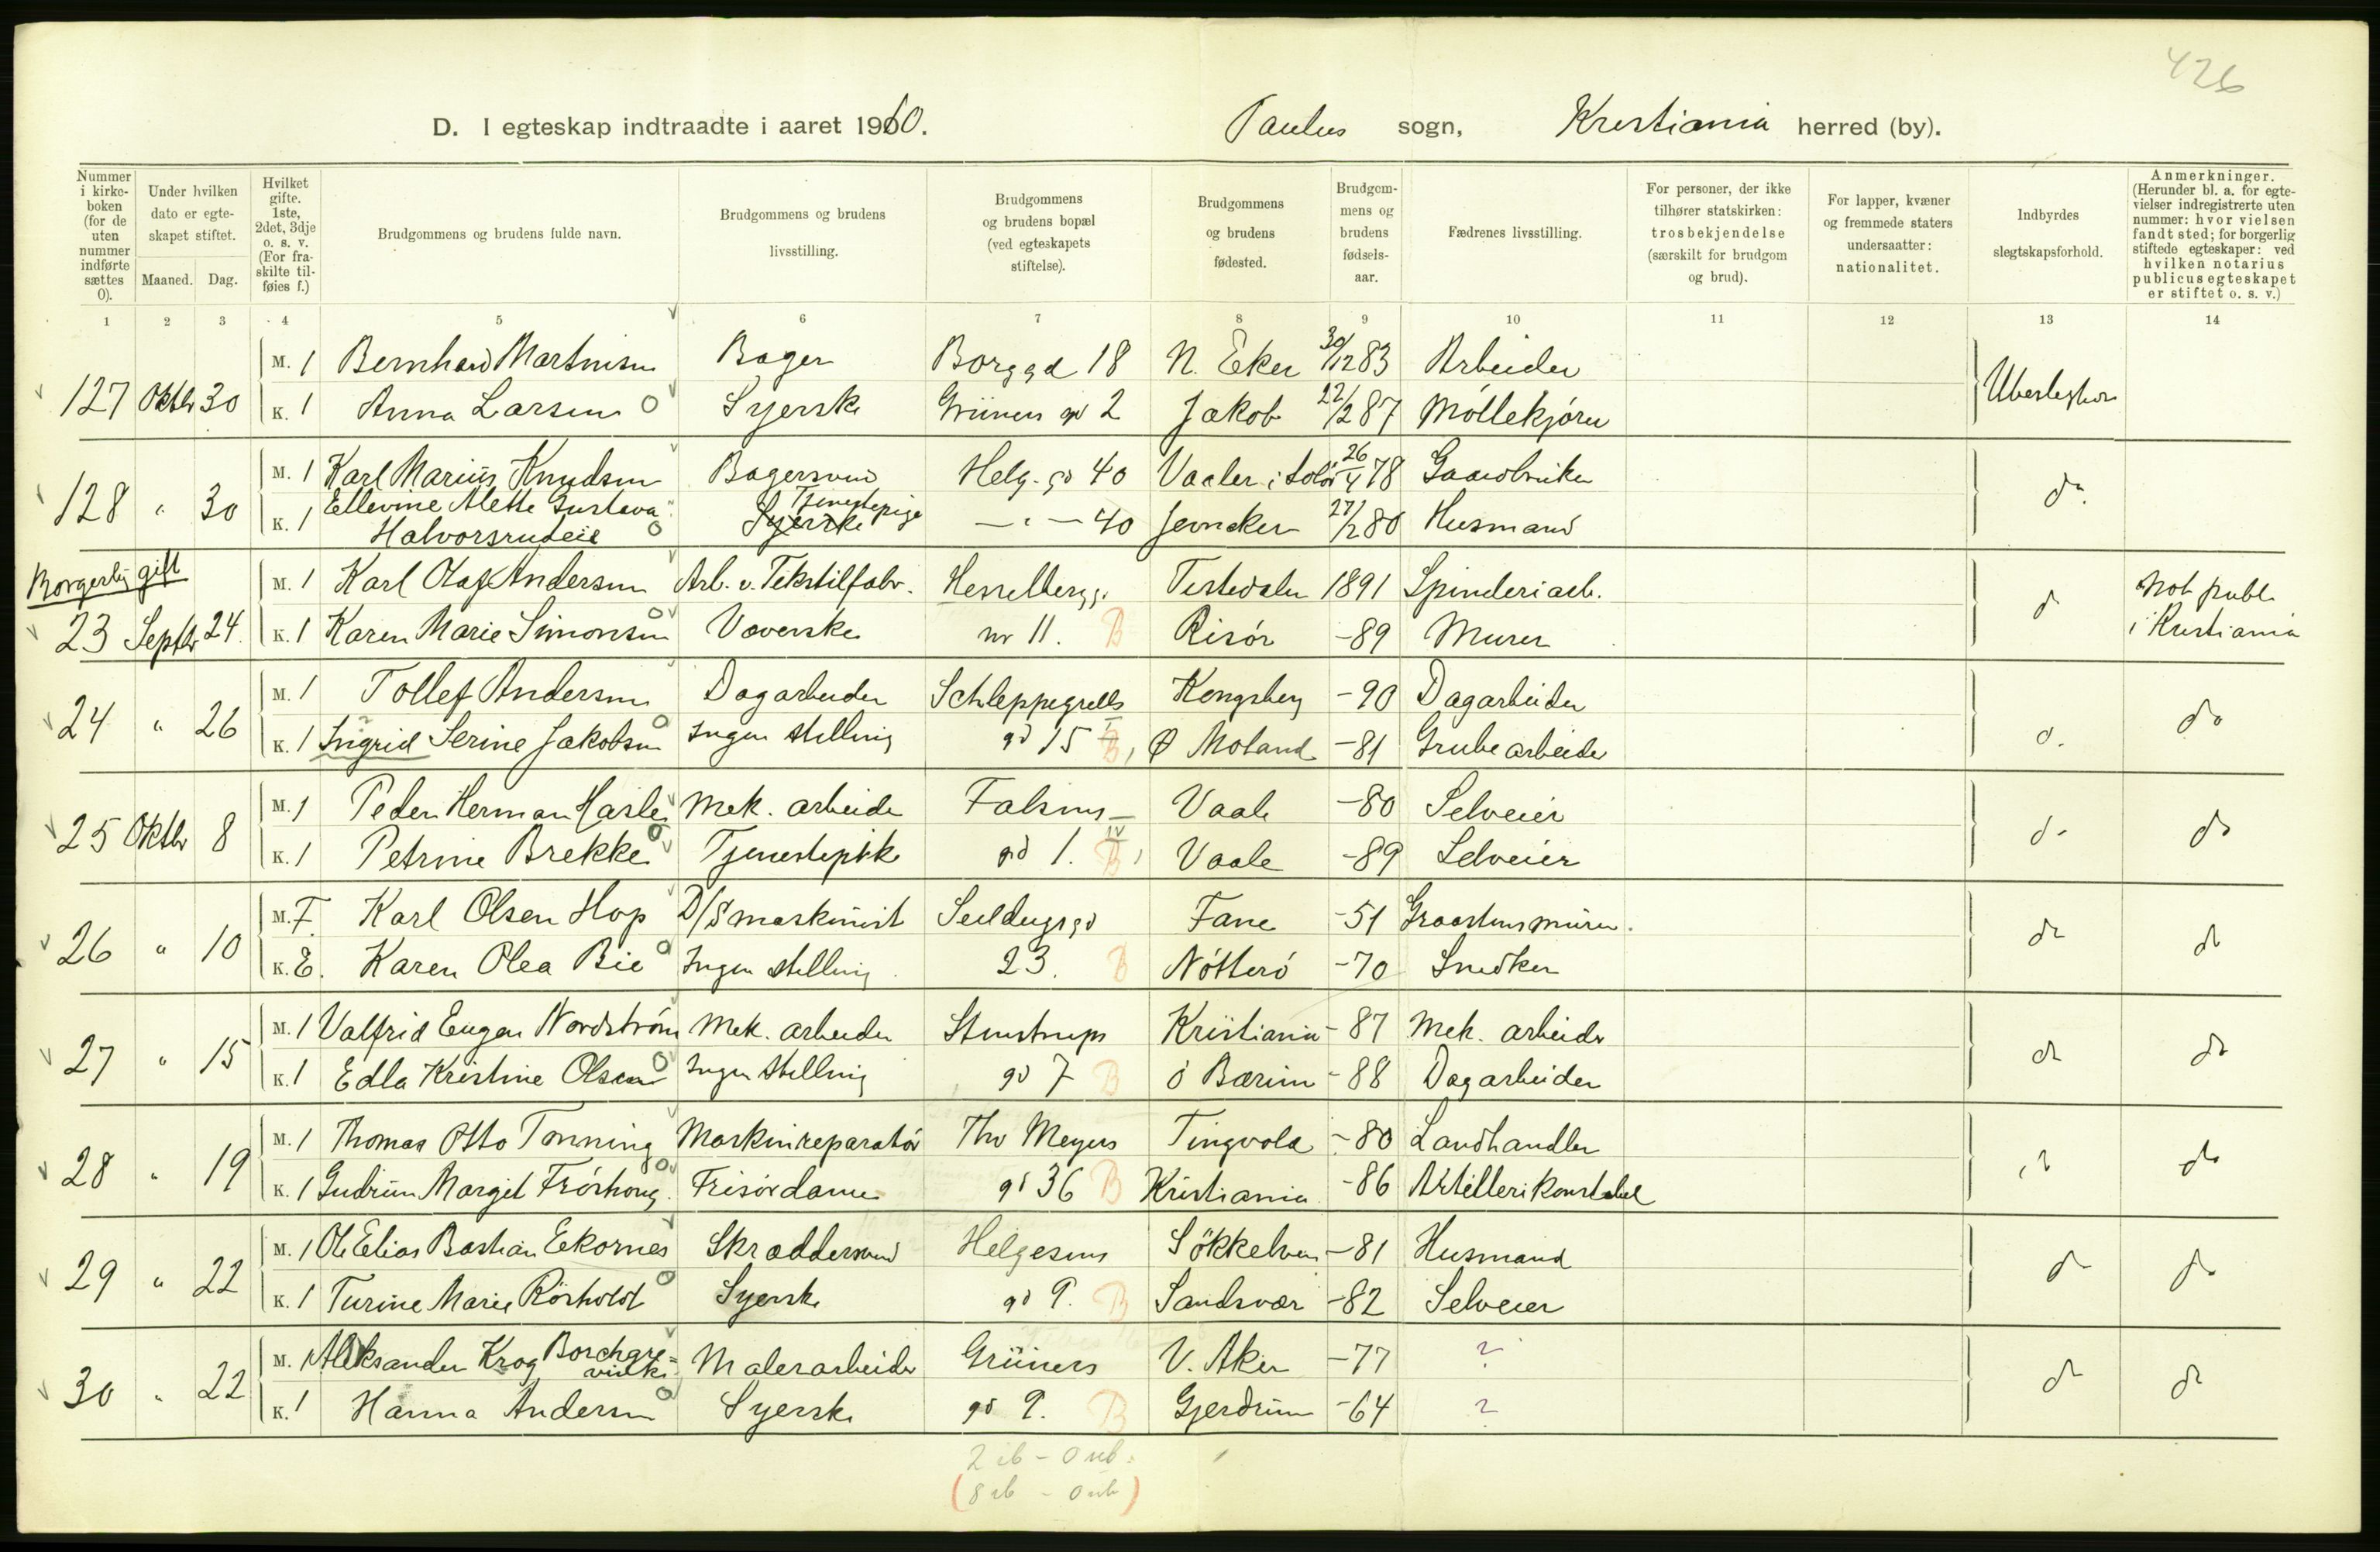 426
D. I egteskap indtraadte i aaret 1910. Paulus sogn, Kristiania herred (by).
Nummer i kirke-boken (for de uten nummer indførte sættes 0).
Under hvilken dato er egte-skapet stiftet.
Maaned. Dag.
Hvilket gifte. 1ste, 2det, 3dje o. s. v. (For fra-skilte til-føies f.)
Brudgommens og brudens fulde navn.
Brudgommens og brudens livsstilling.
Brudgommens og brudens bopæl (ved egteskapets stiftelse).
Brudgommens og brudens fødested.
Brudgom-mens og brudens fødsels-aar.
Fædrenes livsstilling.
For personer, der ikke tilhører statskirken: trosbekjendelse (særskilt for brudgom og brud).
For lapper, kvæner og fremmede staters undersaatter: nationalitet.
Indbyrdes slegtskapsforhold.
Anmerkninger. (Herunder bl. a. for egte-vielser indregistrerte uten nummer: hvor vielsen fandt sted; for borgerlig stiftede egteskaper: ved hvilken notarius publicus egteskapet er stiftet o. s. v.)
1 2 3 4 5 6 7 8 9 10 11 12 13 14
M. 1 Bernhard Martinsen Bager Borggd 18 N. Eker 30/12 83 Arbeider
127 Oktbr 30 K. 1 Anna Larsen Syerske Grüners gd 2 Jakob 22/2 87 Møllekjører Ubeslegtet
M. 1 Karl Marius Knudsen Bagersvend Helg. gd 40 Vaaler i Solør 26/4 78 Gaardbruker
128 " 30 K. 1 Ellevine Alette Gustava Halvorsrudeie Syerske Tjenestepige — " — 40 Jevnaker 27/2 80 Husmand do
Borgerlig gift
M. 1 Karl Olaf Andersen Arb. v. Tekstilfabr. Hesselbergg. Tistedalen 1891 Spinderiarb.
23 Septbr 24. K. 1 Karen Marie Simonsen Væverske nr 11. B Risør -89 Murer do Not publ i Kristiania
M. 1 Tollef Andersen Dagarbeider Schleppegrells Kongsberg -90 Dagarbeider
24 " 26 K. 1 Ingrid Serine Jakobsen Ingen stilling gd 15 B Ø Moland -81 Grubearbeider do do
M. 1 Peder Herman Hasle Mek. arbeider Falsens Vaale -80 Selveier
25 Oktbr 8 K. 1 Petrine Brekke Tjenestepike gd 1. IV B Vaale -89 Selveier do do
M. F. Karl Olsen Hop D/S maskinist Seildugsgd Fane -51 Graastensmurer.
26 " 10 K. E. Karen Olea Bie Ingen stilling 23. B Nøtterø -70 Snedker do do
M. 1 Valfrid Eugen Nordstrøm Mek. arbeider Stenstrups Kristiania -87 Mek. arbeider
27 " 15 K. 1 Edla Kristine Olsen Ingen stilling gd 7 B Ø Bærum -88 Dagarbeider do do
M. 1 Thomas Otto Tønning Maskinreparatør Thv Meyers Tingvold -80 Landhandler
28 " 19 K. 1 Gudrun Margit Frørhong Frisørdame gd 36 B Kristiania -86 Artillerikonstabel do do
M. 1 Ole Elias Bastian Ekornes Skræddersvend Helgesens Søkkelven -81 Husmand
29 " 22 K. 1 Turine Marie Rørholdt Syerske gd 9. B Sandsvær -82 Selveier do do
M. 1 Aleksander Krog Borchgrevink Malerarbeider Grüners V. Aker -77 ?
30 " 22 K. 1 Hanna Andersen Syerske gd 9. B Gjerdrum -64 ? do do
2 ib - 0 ub.
(8 ib - 0 ub)